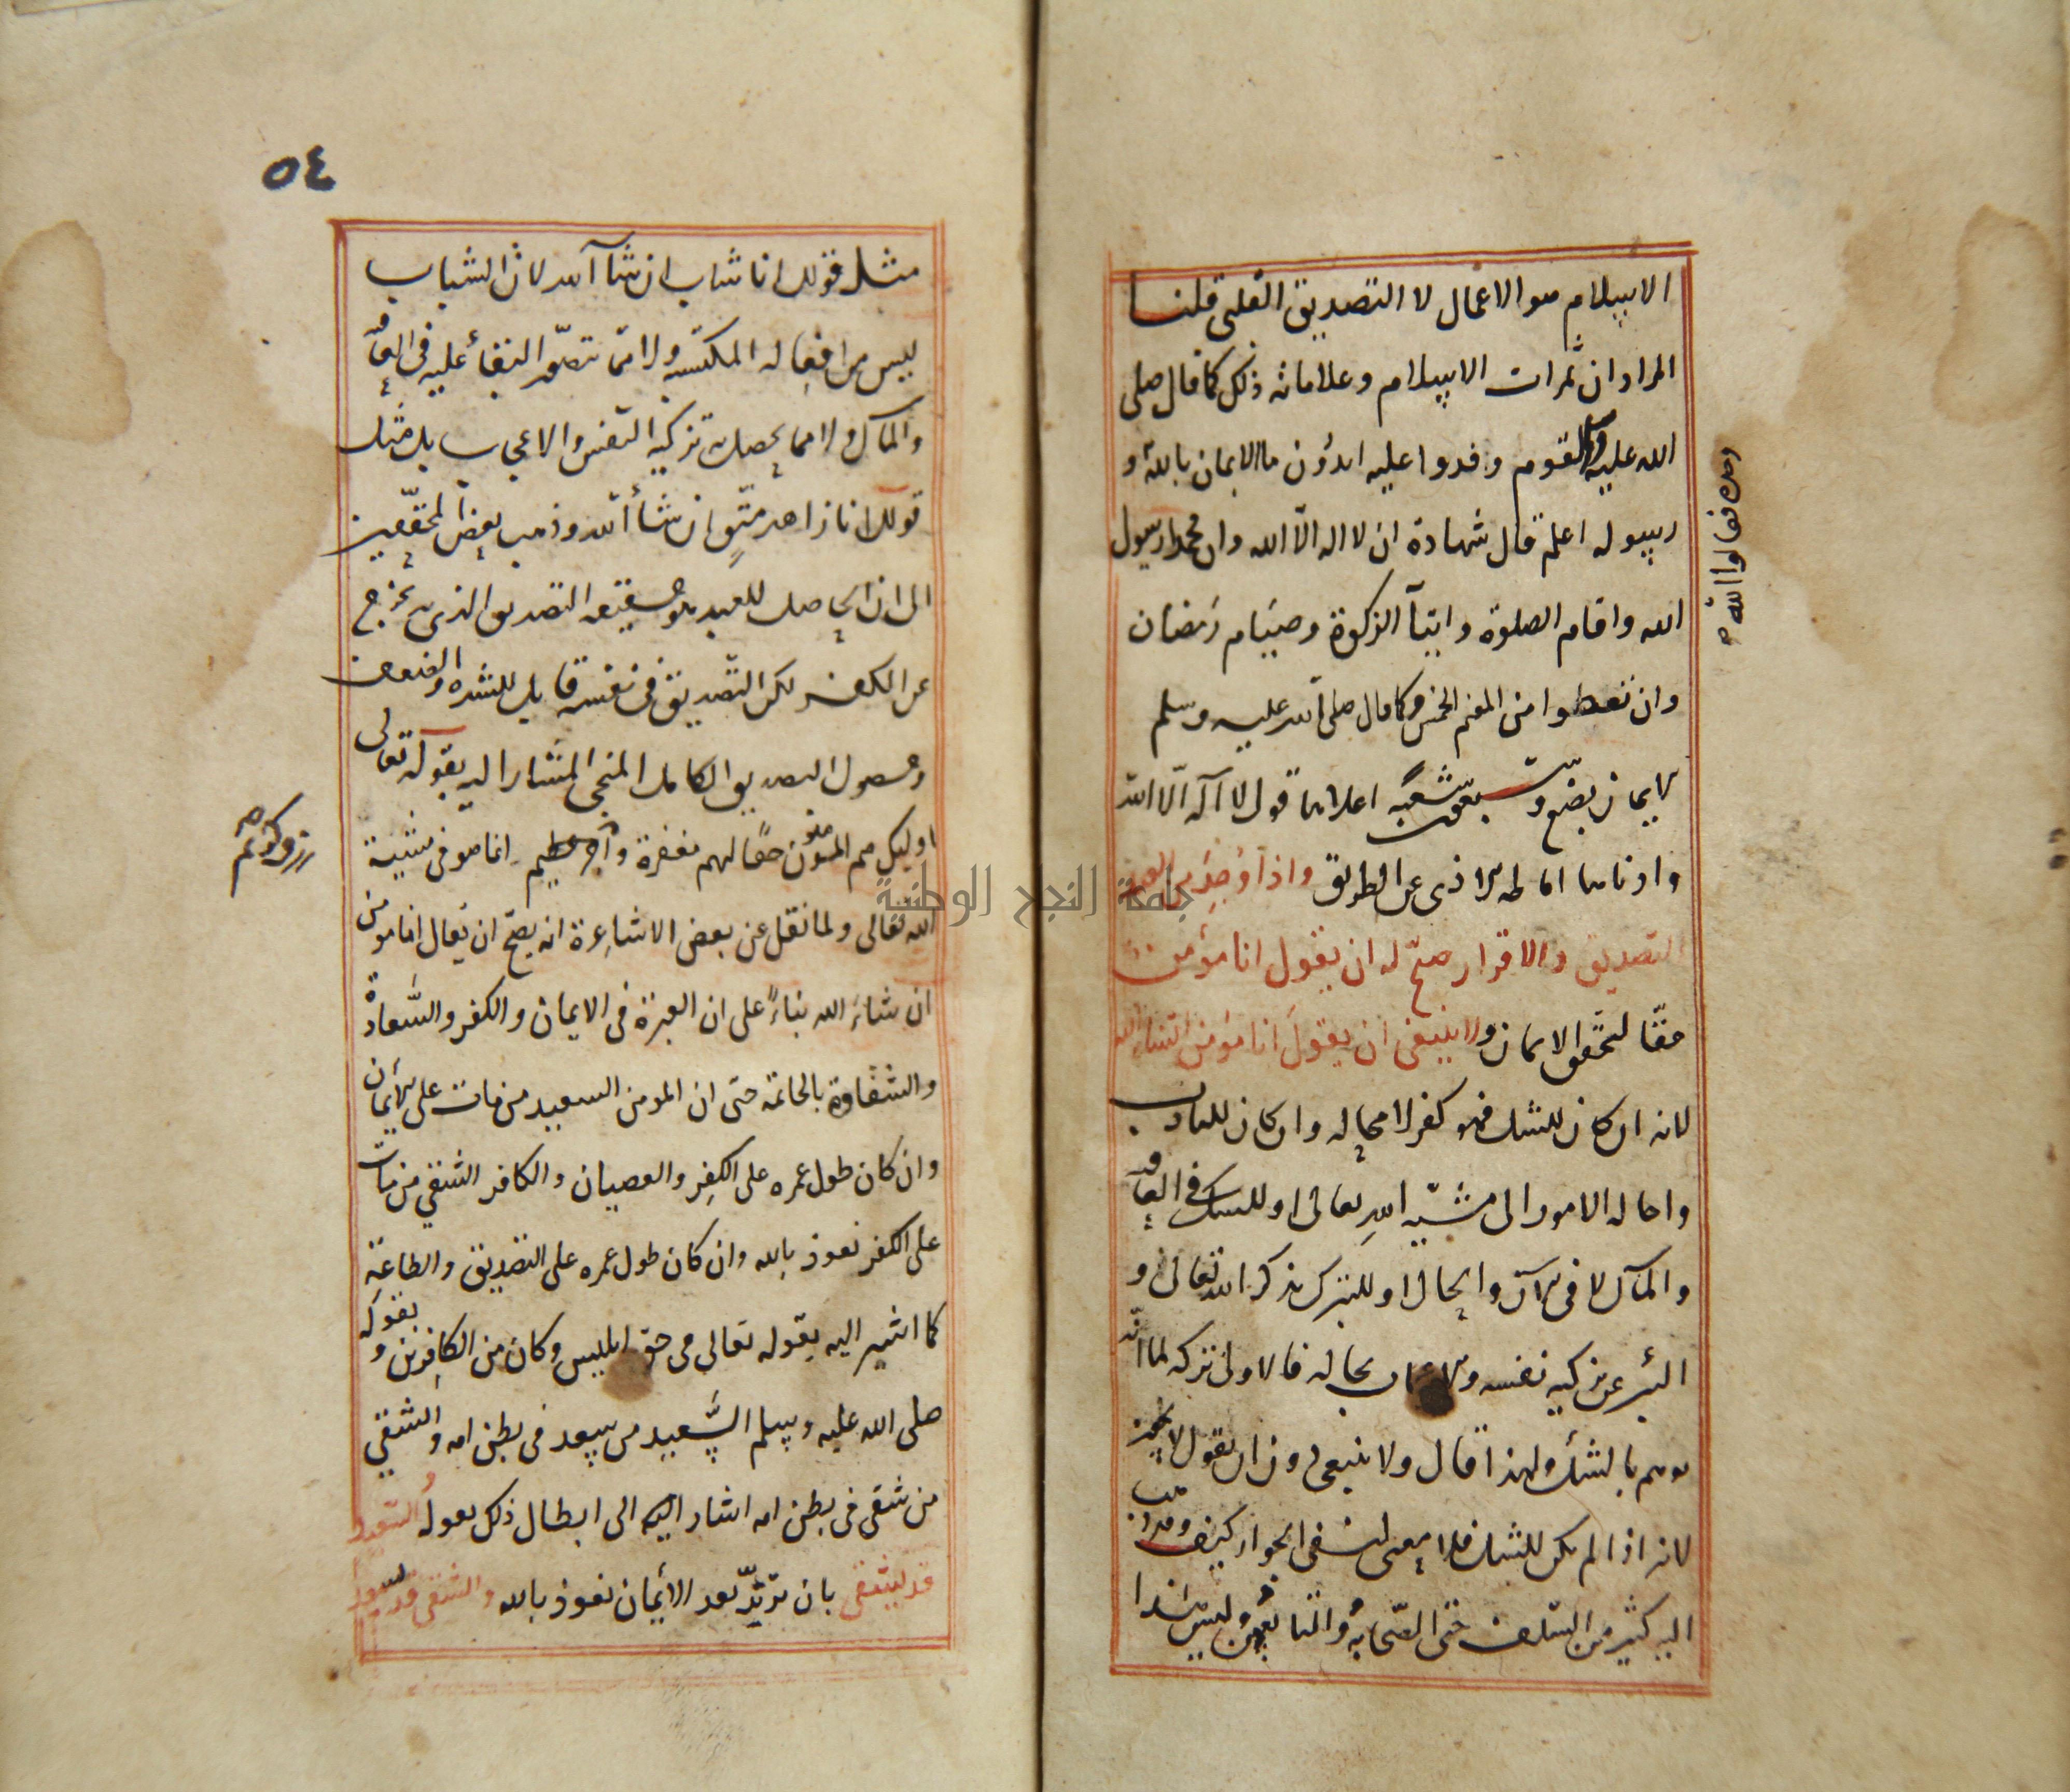 الاسلام هو الاعمال لا التصديق القلبى قلنا
المراد ان ثمرات الاسلام وعلاماته ذلك كما قال صلى
الله عليه لقوم وفدوا عليه اتدرون ما الايمان بالله و
رسوله اعلم قال شهادة ان لا اله الا الله وان محمدا رسول
الله واقام الصلوة وايتآ الزكوة وصيام رمضان
وان تعطوا من المغنم الخمس وكما قال صلى الله عليه وسلم
لايمان بضع وسبعون شعبة اعلاها قول لا آله الا الله
وادناها اماطة الاذى عن الطريق واذا وجد من العبد
التصديق والاقرار صحّ له ان يقول انا مؤمن
حقّا لتحقق الايمان ولا ينبغى ان يقول انا مؤمن انشاء الله
لانه ان كان للشك فهو كفر لا محاله وان كان للتادب
واحالة الامور الى مشية الله تعالى او للشك فى العاقبة
والمآل لا فى الآن والحال او للتبرك بذكر الله تعالى و
التبرء عن تزكية نفسه والاعجاب بحاله فالاولى تركه لما انّه
يوهم بالشك ولهذا قال ولا ينبغى دون ان يقول لا يجوز
لانه اذا لم يكن للشك فلا معنى لنفى الجواز كيف وقد ذهب
اليه كثير من السلف حتى الصحابة والتابعين وليس هذا
ورسوله فقالوا الله
٥٤
مثل قولك انا شاب ان شآ الله لان الشباب
ليس من افعاله المكتسبه ولا مما يتصور البقاء عليه فى العاقبة
والمآل ولا مما يحصل به تزكية النفس والاعجاب بل مثل
قولك انا زاهد متق ان شاء الله وذهب بعض المحققين
الى ان الحاصل للعبد هو حقيقة التصديق الذى به يخرج
عن الكفر لكن التصديق فى نفسه قابل للشدة والضعف
وحصول التصديق الكامل المنجى المشار اليه بقوله تعالى
اوليك هم المؤمنون حقا لهم مغفرة واجر عظيم انما هو فى مشية
ورزق كريم
الله تعالى ولما نقل عن بعض الاشاعرة انه يصح ان يقال انا مؤمن
ان شاء الله بناءً على ان العبرة فى الايمان والكفر والسّعادة
والشقاوة بالخاتمة حتى ان المومن السعيد من مات على الايمان
وان كان طول عمره على الكفر والعصيان والكافر الشقي من مات
على الكفر نعوذ بالله وان كان طول عمره على التصديق والطاعة
كما اشير اليه بقوله تعالى فى حق ابليس وكان من الكافرين وبقوله
صلى الله عليه وسلم السّعيد من سعد فى بطن امه والشقي
من شقى فى بطن امه اشار اليه الى ابطال ذلك بقوله والسعيد
قد يشقى بان يرتدّ بعد الايمان نعوذ بالله والشقى قد يسعد
جامعة النجاح الوطنية